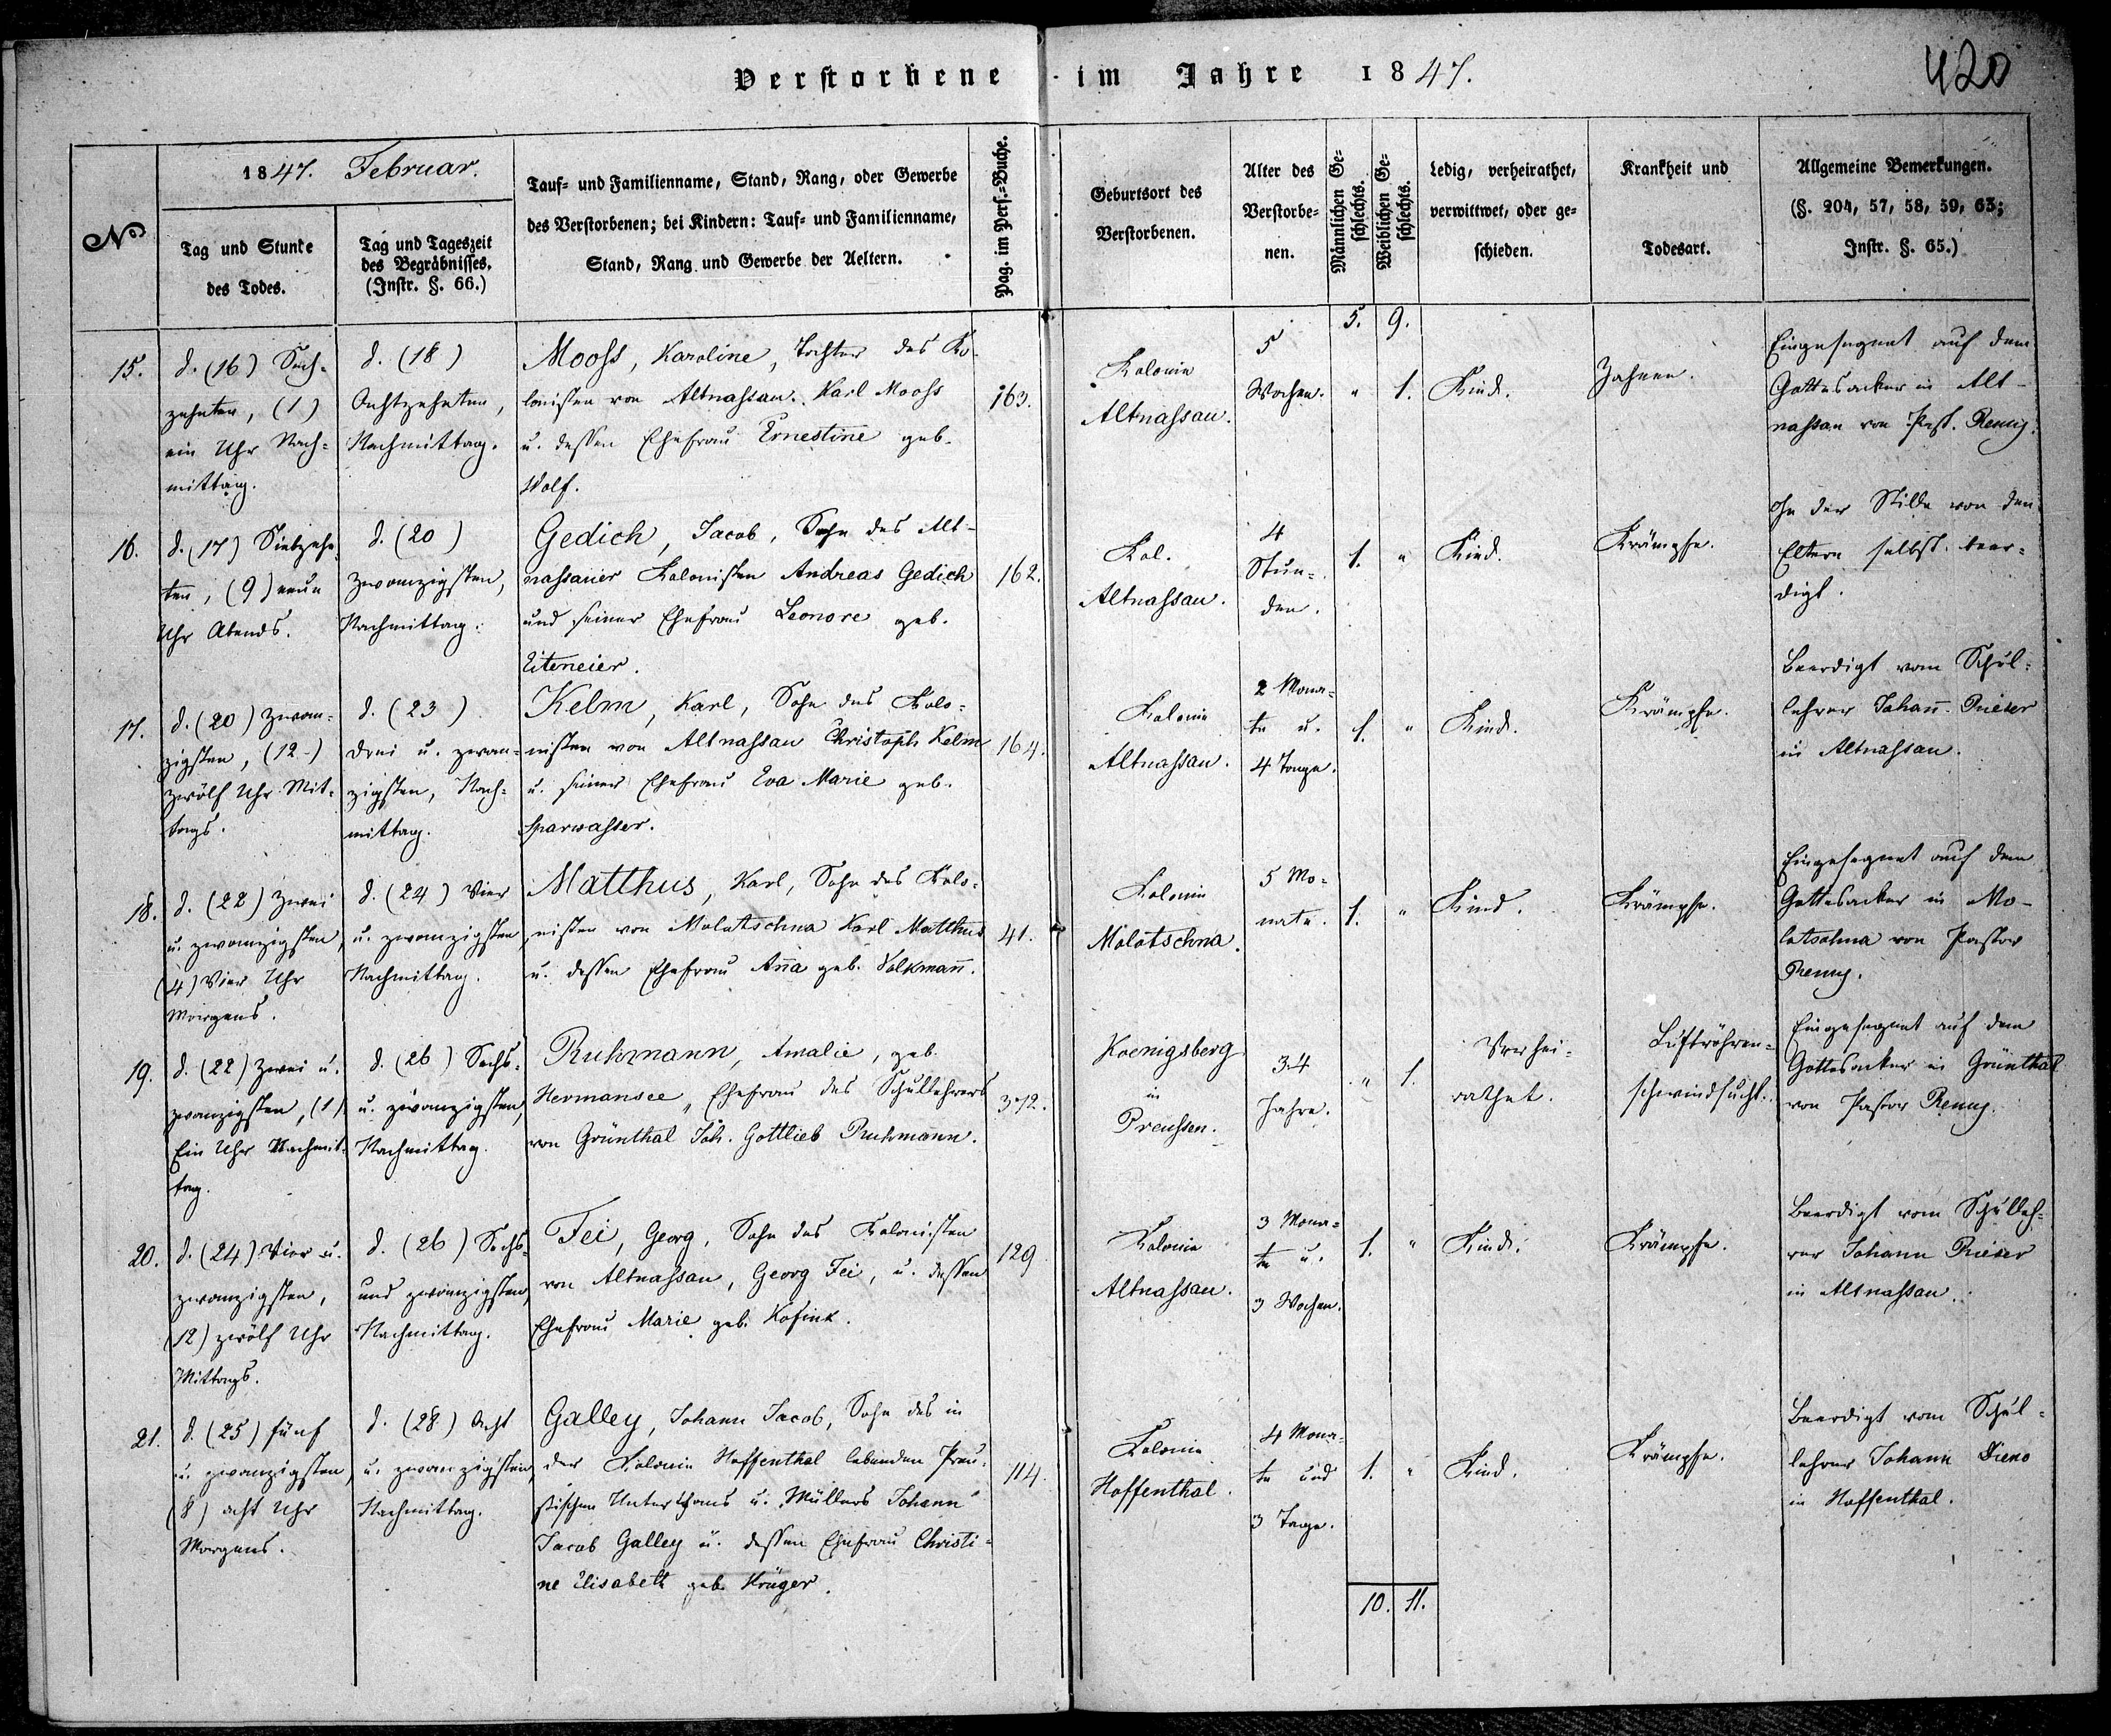 Verstorbene im Jahre 1847.
420
No
1847. Februar.
Tag und Stunde
des Todes.
Tag und Tageszeit
des Begräbnisses.
(Instr. §. 66.)
Tauf- und Familienname, Stand, Rang, oder Gewerbe
des Verstorbenen; bei Kindern: Tauf- und Familienname,
Stand, Rang und Gewerbe der Aeltern.
Pag. im Pers.-Buche.
Geburtsort des
Verstorbenen.
Alter des
Verstorbe-
nen.
Männlichen Ge-
schlechts.
Weiblichen Ge-
schlechts.
Ledig, verheirathet,
verwittwet, oder ge-
schieden.
Krankheit und
Todesart.
Allgemeine Bemerkungen.
(§. 204, 57, 58, 59, 63;
Instr. §. 65.)
5. 9.
15.
d. (16) Sech-
zehnten, (1)
ein Uhr Nach-
mittag.
d. (18)
Achtzehnten,
Nachmittag.
Mooss, Karoline, Tochter des Ko-
lonisten von Altnassau. Karl Mooss
u. dessen Ehefrau Ernestine geb.
Wolf.
163.
Kolonie
Altnassau.
5
Wochen.
" 1.
Kind.
Zahnen.
Eingesegnet auf dem
Gottesacker in Alt-
nassau von Past. Remy.
16.
d. (17) Siebzehn-
ten, (9) neun
Uhr Abends.
d. (20)
zwanzigsten,
Nachmittag.
Gedich, Jacob, Sohn des Alt-
nassauer Kolonisten Andreas Gedich
und seiner Ehefrau Leonore geb.
Eiteneier.
162.
Kol.
Altnassau.
4
Stun-
den.
1. "
Kind.
Krämpfe.
In der Stille von den
Eltern selbst beer-
digt.
17.
d. (20) zwan-
zigsten, (12)
zwölf Uhr Mit-
tags.
d. (23)
drei u. zwan-
zigsten, Nach-
mittag.
Kelm, Karl, Sohn des Kolo-
nisten von Altnassau Christoph Kelm
u. seiner Ehefrau Eva Marie geb.
Sparwasser.
164.
Kolonie
Altnassau.
2 Mona-
te u.
4 Tage.
1. "
Kind.
Krämpfe.
Beerdigt vom Schul-
lehrer Johann Rieker
in Altnassau.
18.
d. (22) Zwei
u. zwanzigsten,
(4) Vier Uhr
Morgens.
d. (24) Vier
u. zwanzigsten
Nachmittag.
Matthus, Karl, Sohn des Kolo-
nisten von Molotschna Karl Matthus
u. dessen Ehefrau Anna geb. Volkmann.
41.
Kolonie
Molotschna.
5 Mo-
nate.
1. "
Kind.
Krämpfe.
Eingesegnet auf dem
Gottesacker in Mo-
lotschna von Pastor
Remy.
19.
d. (22) Zwei u.
zwanzigsten, (1)
Ein Uhr Nachmit-
tag.
d. (26) Sechs-
u. zwanzigsten,
Nachmittag.
Ruhmann, Amalie, geb.
Hermansee, Ehefrau des Schullehrers
von Grünthal Joh. Gottlieb Ruhmann.
372.
Koenigsberg
in
Preussen.
34
Jahre.
" 1.
Verhei-
rathet.
Luftröhren-
schwindsucht.
Eingesegnet auf dem
Gottesacker in Grünthal
von Pastor Remy.
20.
d. (24) Vier u.
zwanzigsten,
(12) zwölf Uhr
Mittags.
d. (26) Sechs-
und zwanzigsten,
Nachmittag.
Fei, Georg, Sohn des Kolonisten
von Altnassau, Georg Fei, u. dessen
Ehefrau Marie geb. Kofink.
129
Kolonie
Altnassau.
3 Mona-
te u.
3 Wochen.
1. "
Kind.
Krämpfe.
Beerdigt vom Schulleh-
rer Johann Rieker
in Altnassau.
21.
d. (25) fünf
u. zwanzigsten,
(8) acht Uhr
Morgens.
d. (28) Acht
u. zwanzigsten,
Nachmittag.
Galley, Johann Jacob, Sohn des in
der Kolonie Hoffenthal lebenden Preu-
ssischen Unterthans u. Müllers Johann
Jacob Galley u. dessen Ehefrau Christi-
ne Elisabeth geb. Krüger.
114.
Kolonie
Hoffenthal.
4 Mona-
te und
3 Tage.
1. "
Kind.
Krämpfe.
Beerdigt vom Schul-
lehrer Johann
in Hoffenthal.
10. 11.